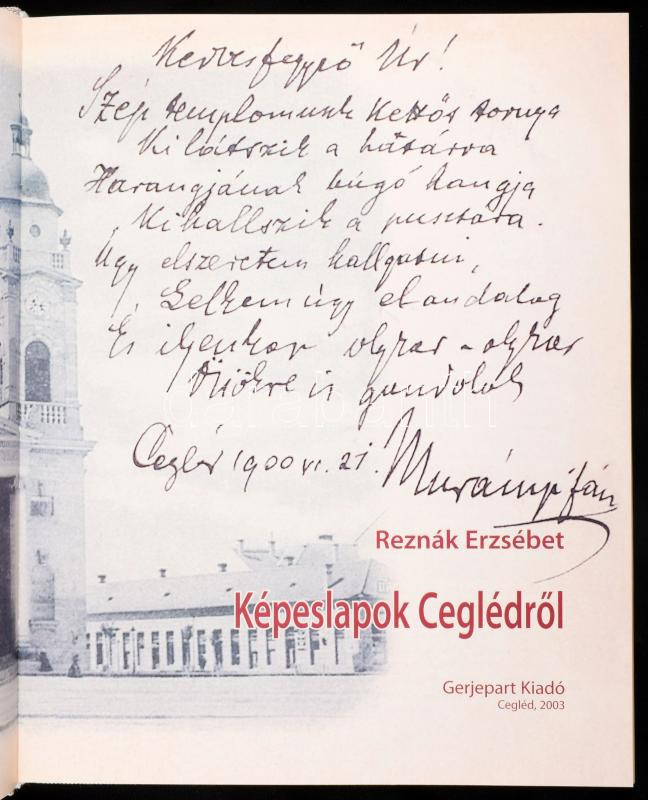 Kedves jegyző Úr!
Szép templomunk kettős tornya
Kilátszik a határra
Harangjának búgó hangja
Kihallszik a pusztára.
Úgy elszeretem hallgatni,
Lelkem úgy elandalog
És ilyenkor olykor-olykor
Önökre is gondolok
Cegléd 1900 VI. 21. Murányi Ján
Reznák Erzsébet
Képeslapok Ceglédről
Gerjepart Kiadó
Cegléd, 2003
darabanth